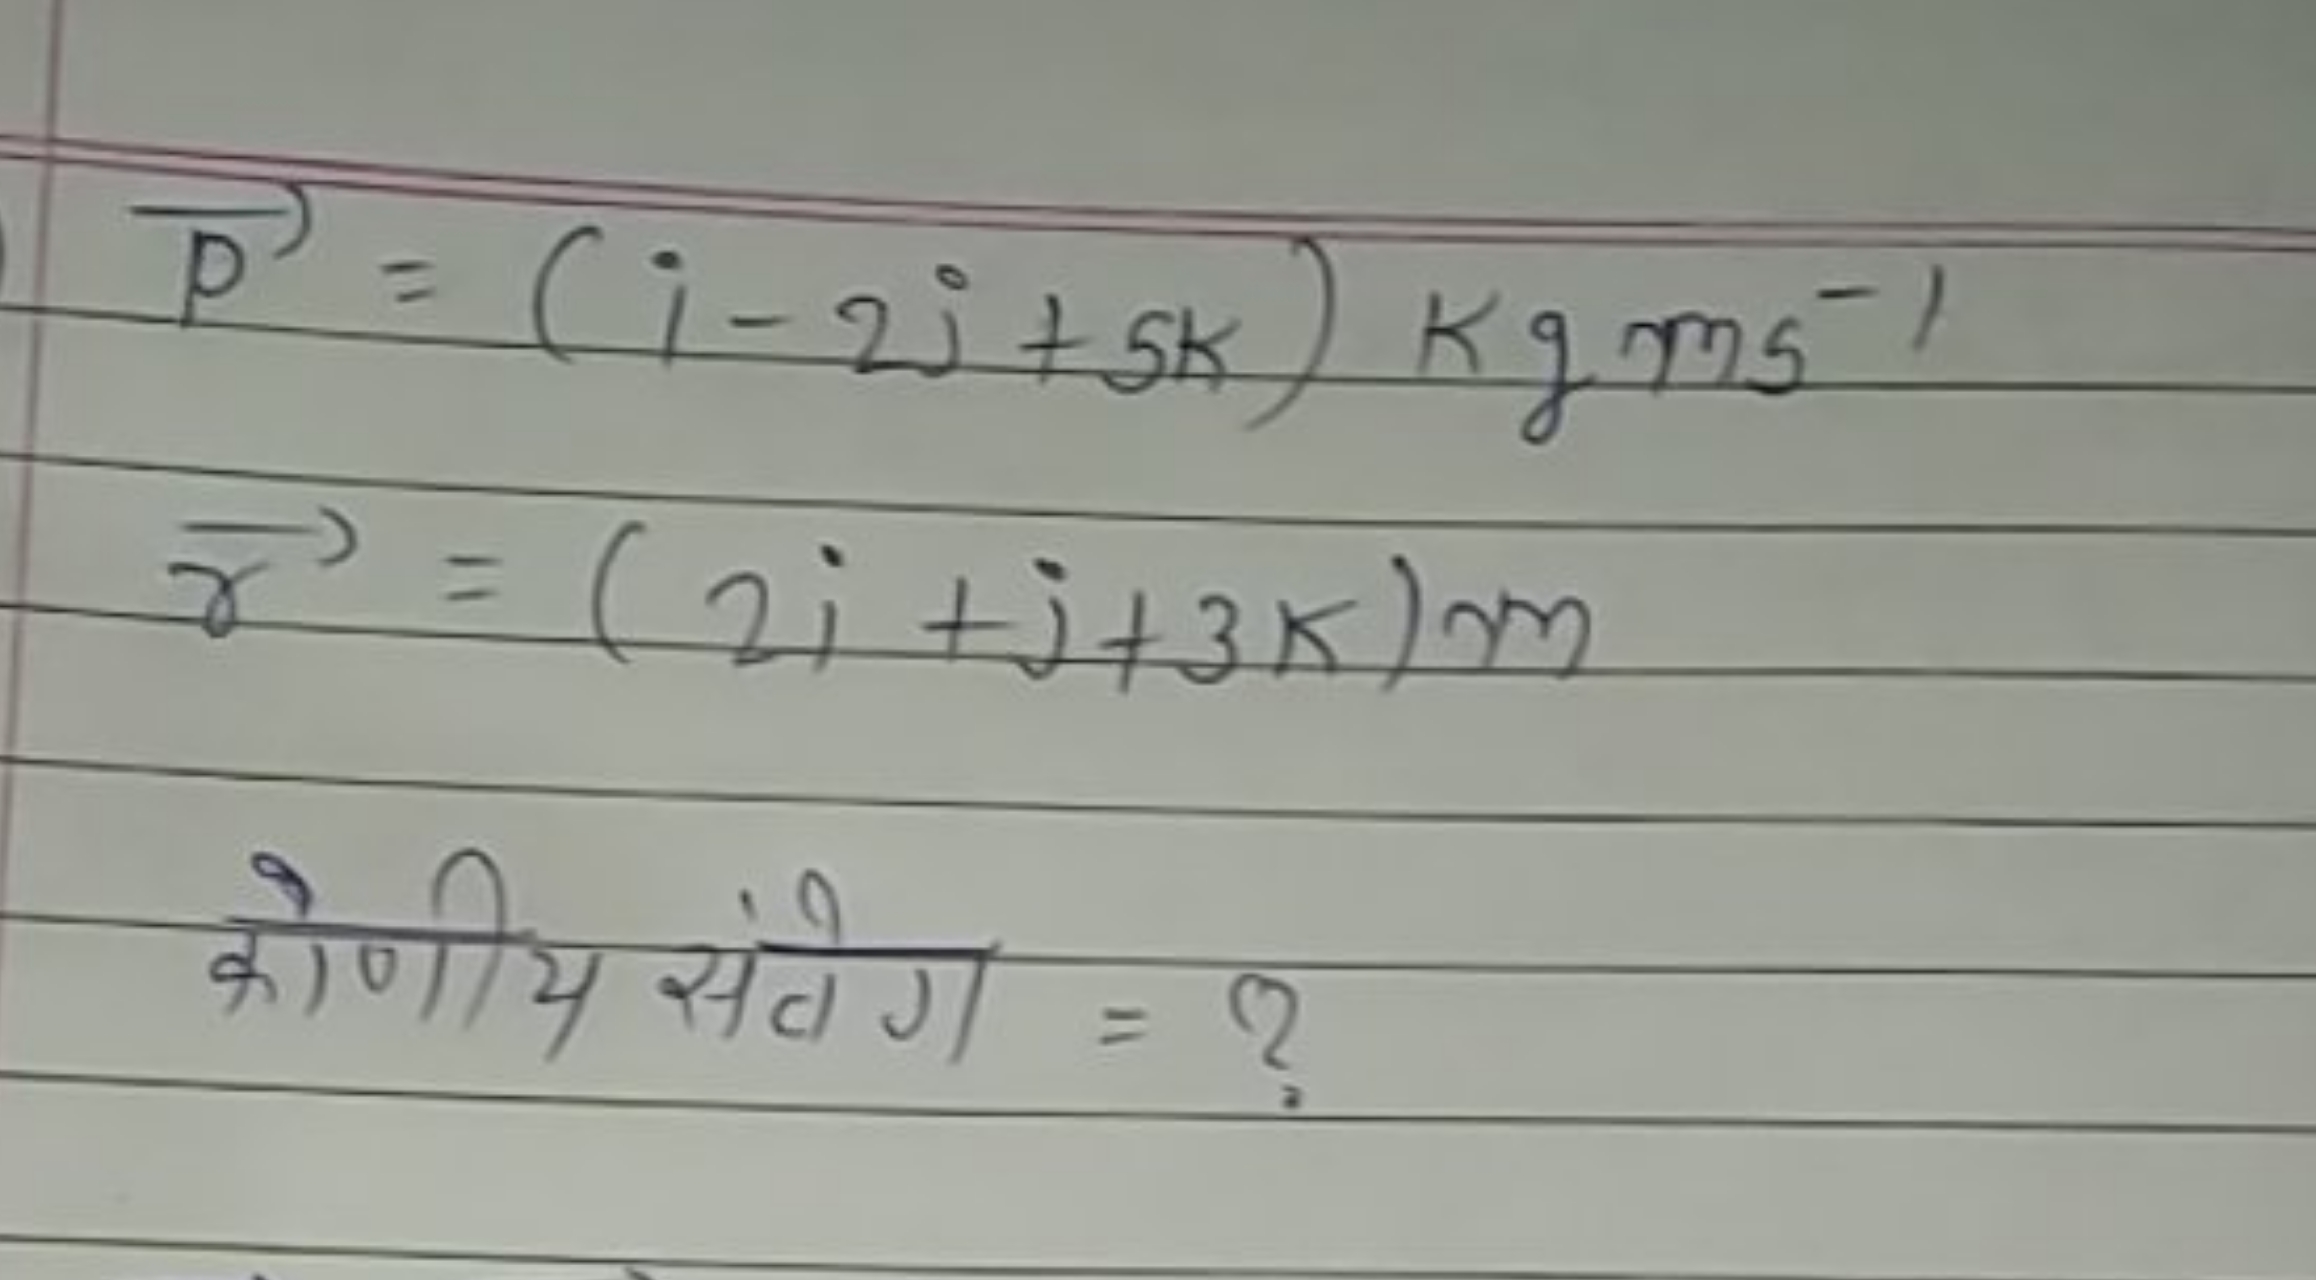 p⃗ = (i - 2j + 5k) Kg ms⁻¹
r⃗ = (2i + j + 3k) m
कोणीय संवेग = ?